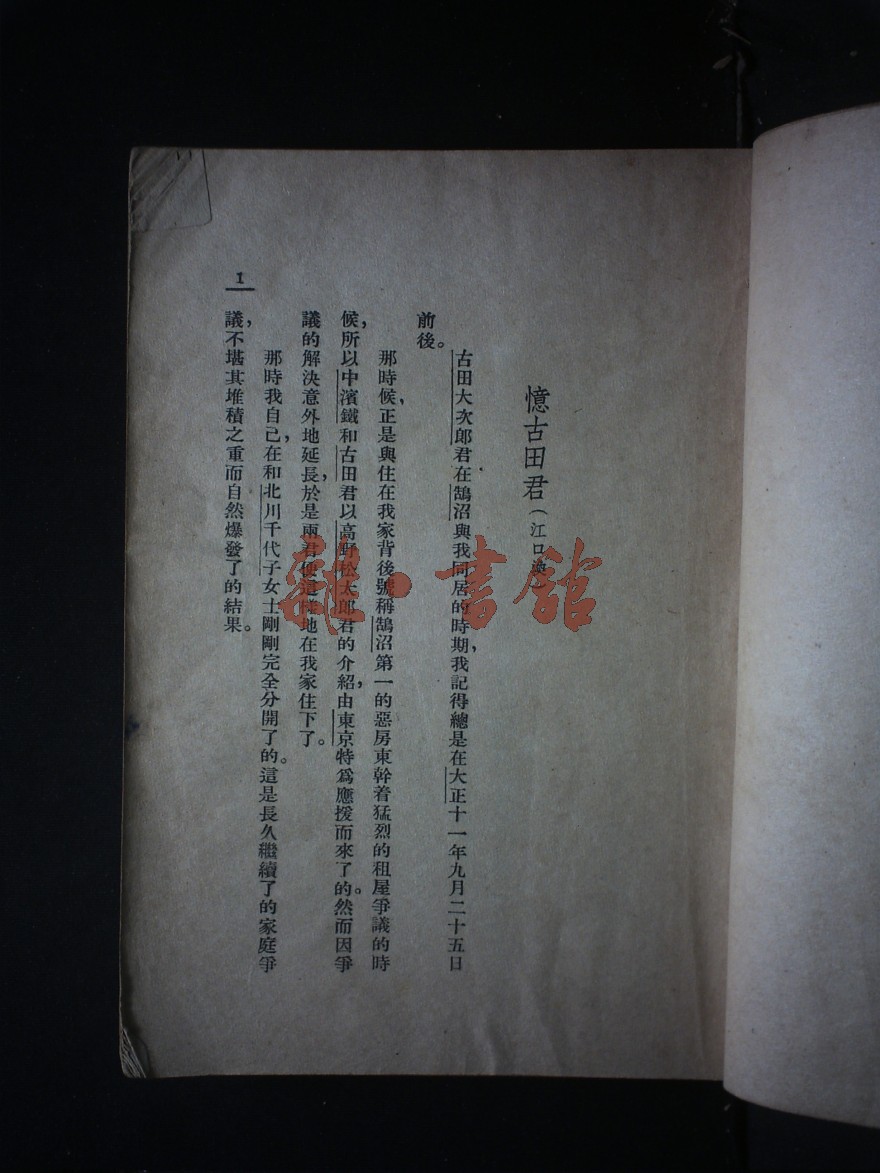 憶古田君(江口
古田大次郎君在鵠沼與我同居的時期,我記得總是在大正十一年九月二十五日
前後。
那時候,正是與住在我家背後號稱鵠沼第一的惡房東幹着猛烈的租屋爭議的時
候,所以中濱鐵和古田君以高野松太郎君的介紹,由東京特爲應援而來了的。然而因爭
議的解決意外地延長,於是兩君便這樣地在我家住下了。
那時我自己,在和北川千代子女士剛剛完全分開了的。這是長久繼續了的家庭爭
議,不堪其堆積之重而自然爆發了的結果。
1
雜·書館